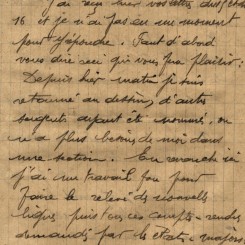 J'ai reçu hier vos lettres du
16 et je n'ai pas eu une moment
pour répondre. Tout d'abord
vous dire ceci qui vous fera plaisir:
Depuis hier matin je suis
retourné au dessin, d'autres
sergents ayant été nommés, on
n'a plus besoin de moi dans
une section. En revanche ici
j'ai un travail fou pour
faire le relevé de nouvelles
lignes, puis tous ces comptes-rendus
demandés par les états-majors